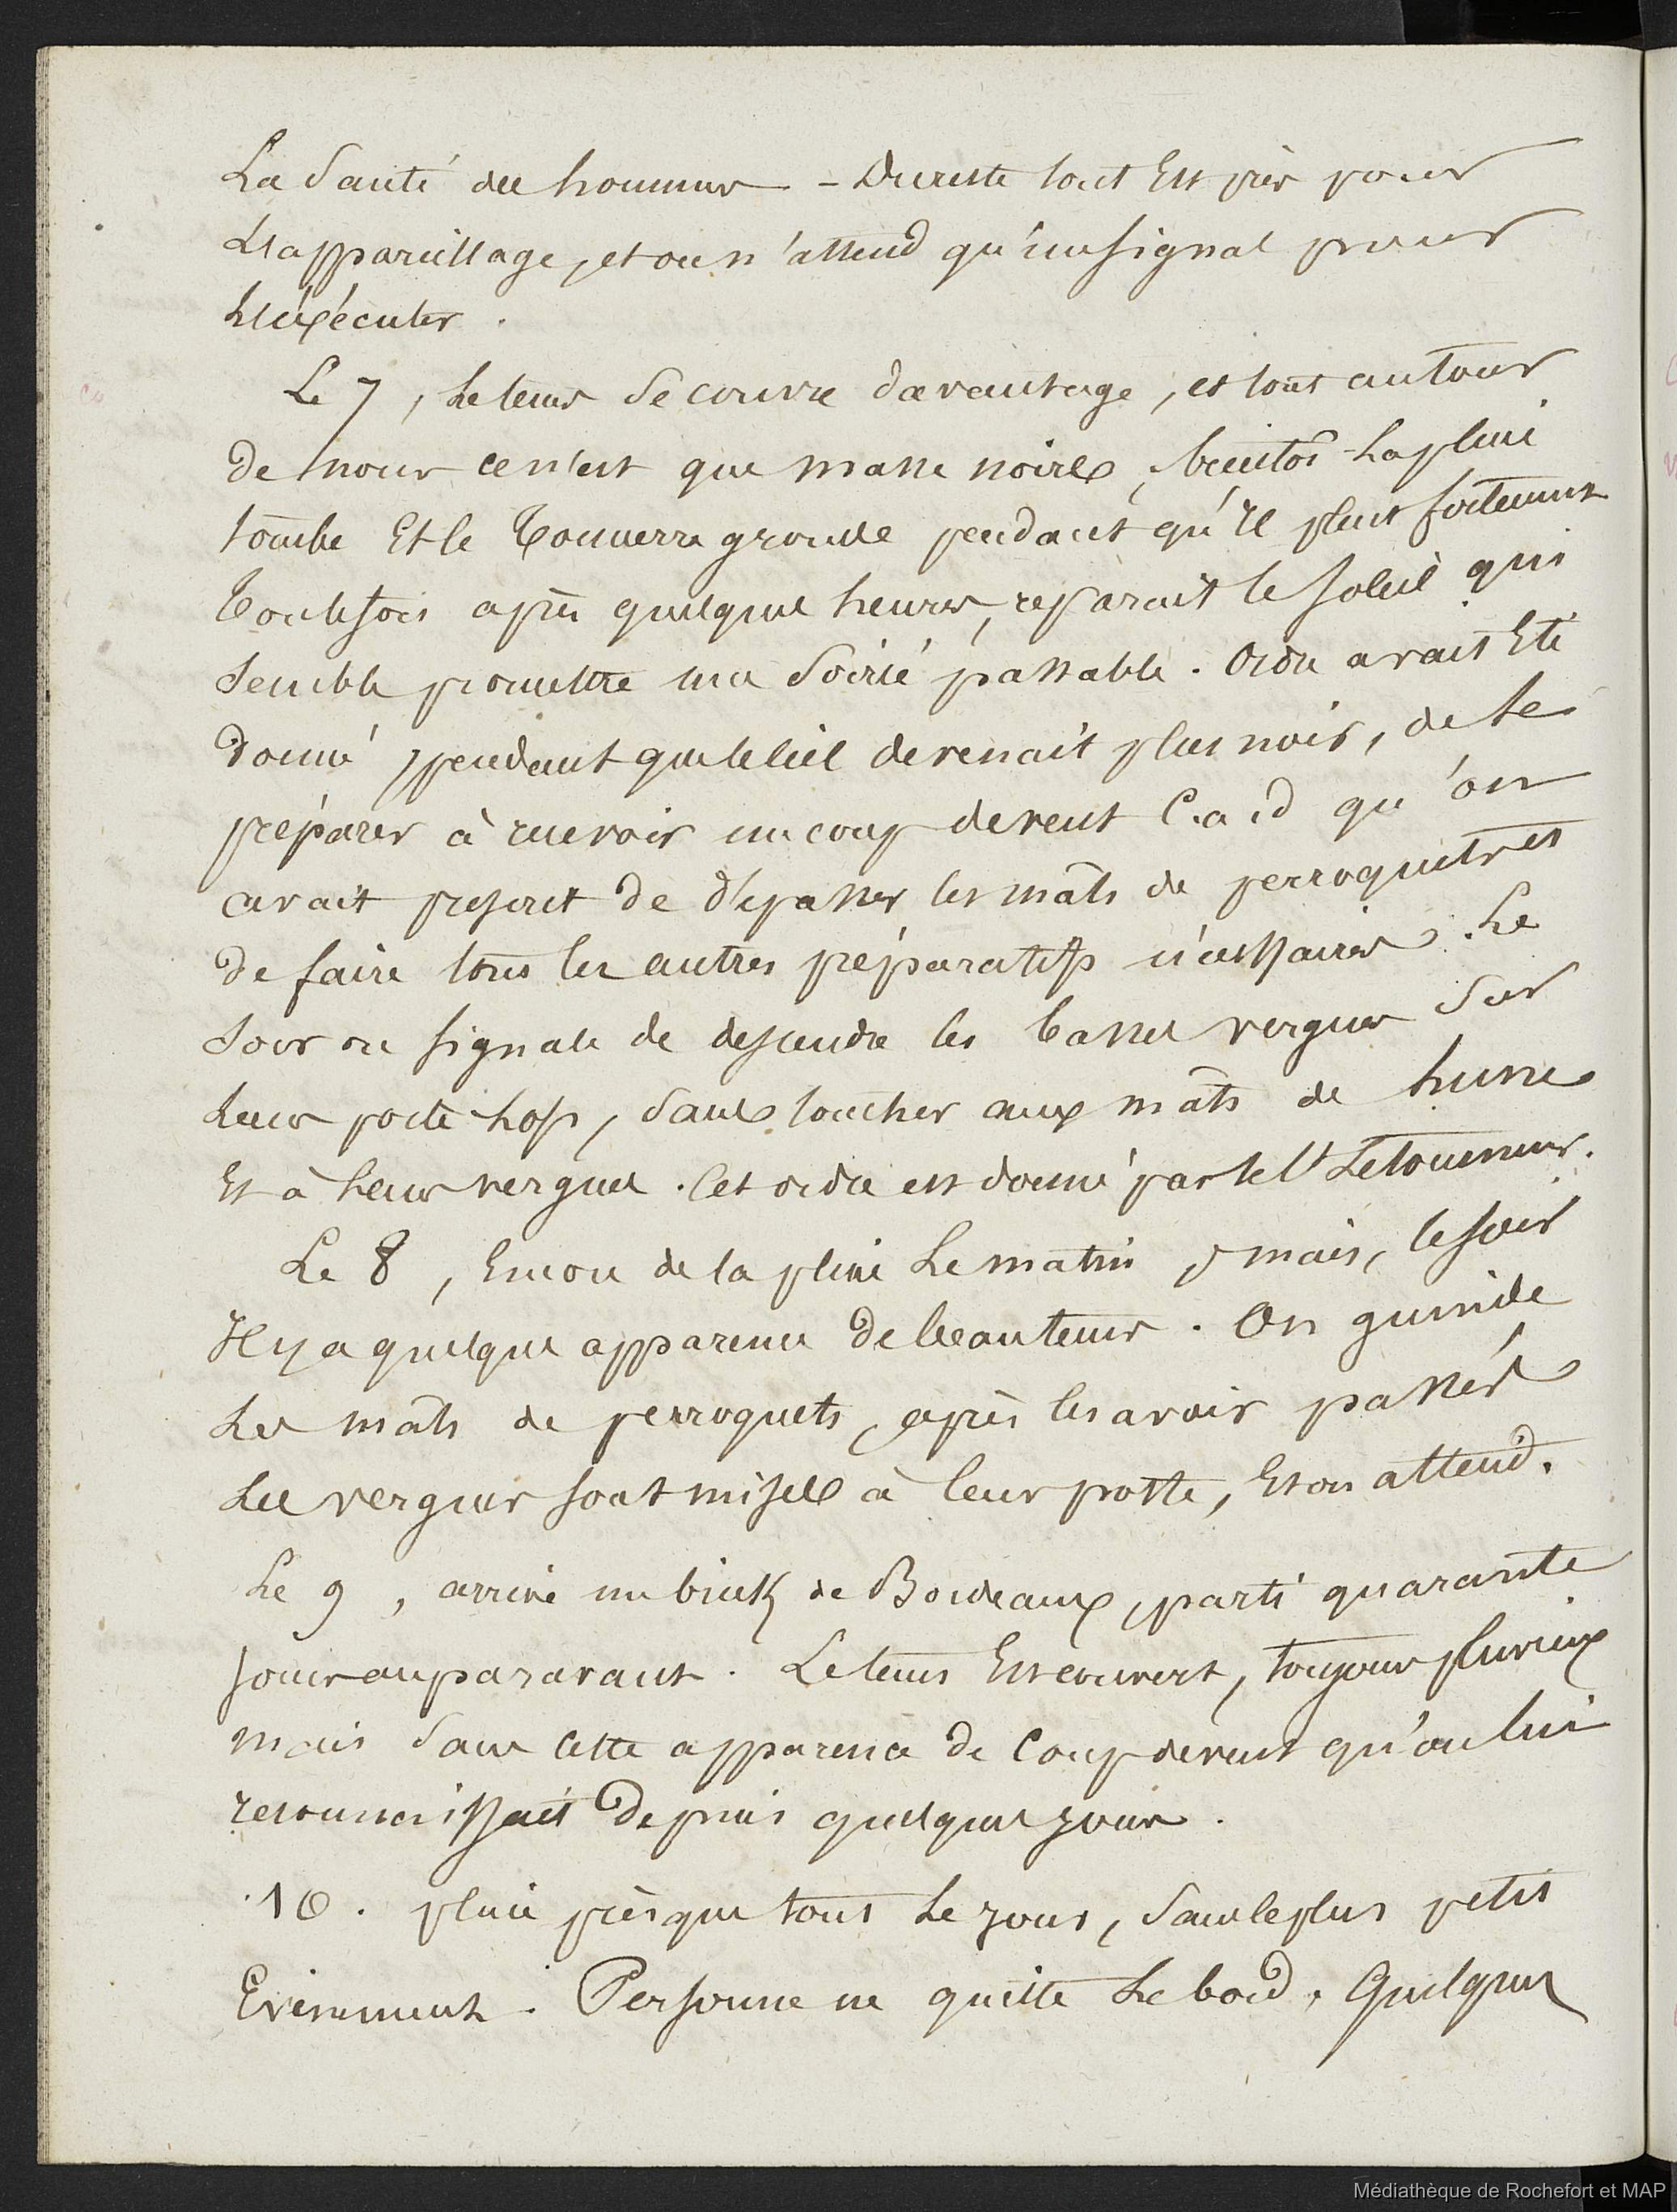 La Santé des hommes – Dureste tout Est près pour
L'appareillage, et on n'attend qu'un signal pour
L'éxécuter.
Le 7, Le tems Se couvre davantage, et tout autour
de nous ce n'est que masse noire, bientôt La pluie
tombe Et le Tonnerre gronde pendant qu'Il pleut fortement
Toutefois après quelques heures, reparait le soleil qui
Semble promettre une Soirée passable. Ordre avait Eté
donné pendant que le Ciel devenait plus noir, de Se
préparer à recevoir un coup de vent C.a.d qu'on
avait prescrit de dépasser les mâts de perroquets et
de faire tous les autres préparatifs nécessaires. Le
Soir on signale de descendre les basses vergues Sur
Leur porte-lof, Sans toucher aux mâts de hunes
Et à Leurs vergues. Cet ordre est donné par le Ct Letourneur.
Le 8, Encore de la pluie Le matin, mais, le soir
Il y a quelque apparence de beau tems. On guinde
Les mâts de perroquets, après les avoir passés
Les vergues sont mises à leur poste, Et on attend.
Le 9, arrivé un brick de Bordeaux, parti quarante
jours auparavant. Le tems Est couvert, toujours pluvieux
mais Sans cette apparence de Coup de vent qu'on lui
reconnaissait Depuis quelques jours.
10. pluie près que tout Le jour, Sans le plus petit
Evènement. Personne ne quitte Le bord. Quelques
Médiathèque de Rochefort et MAP